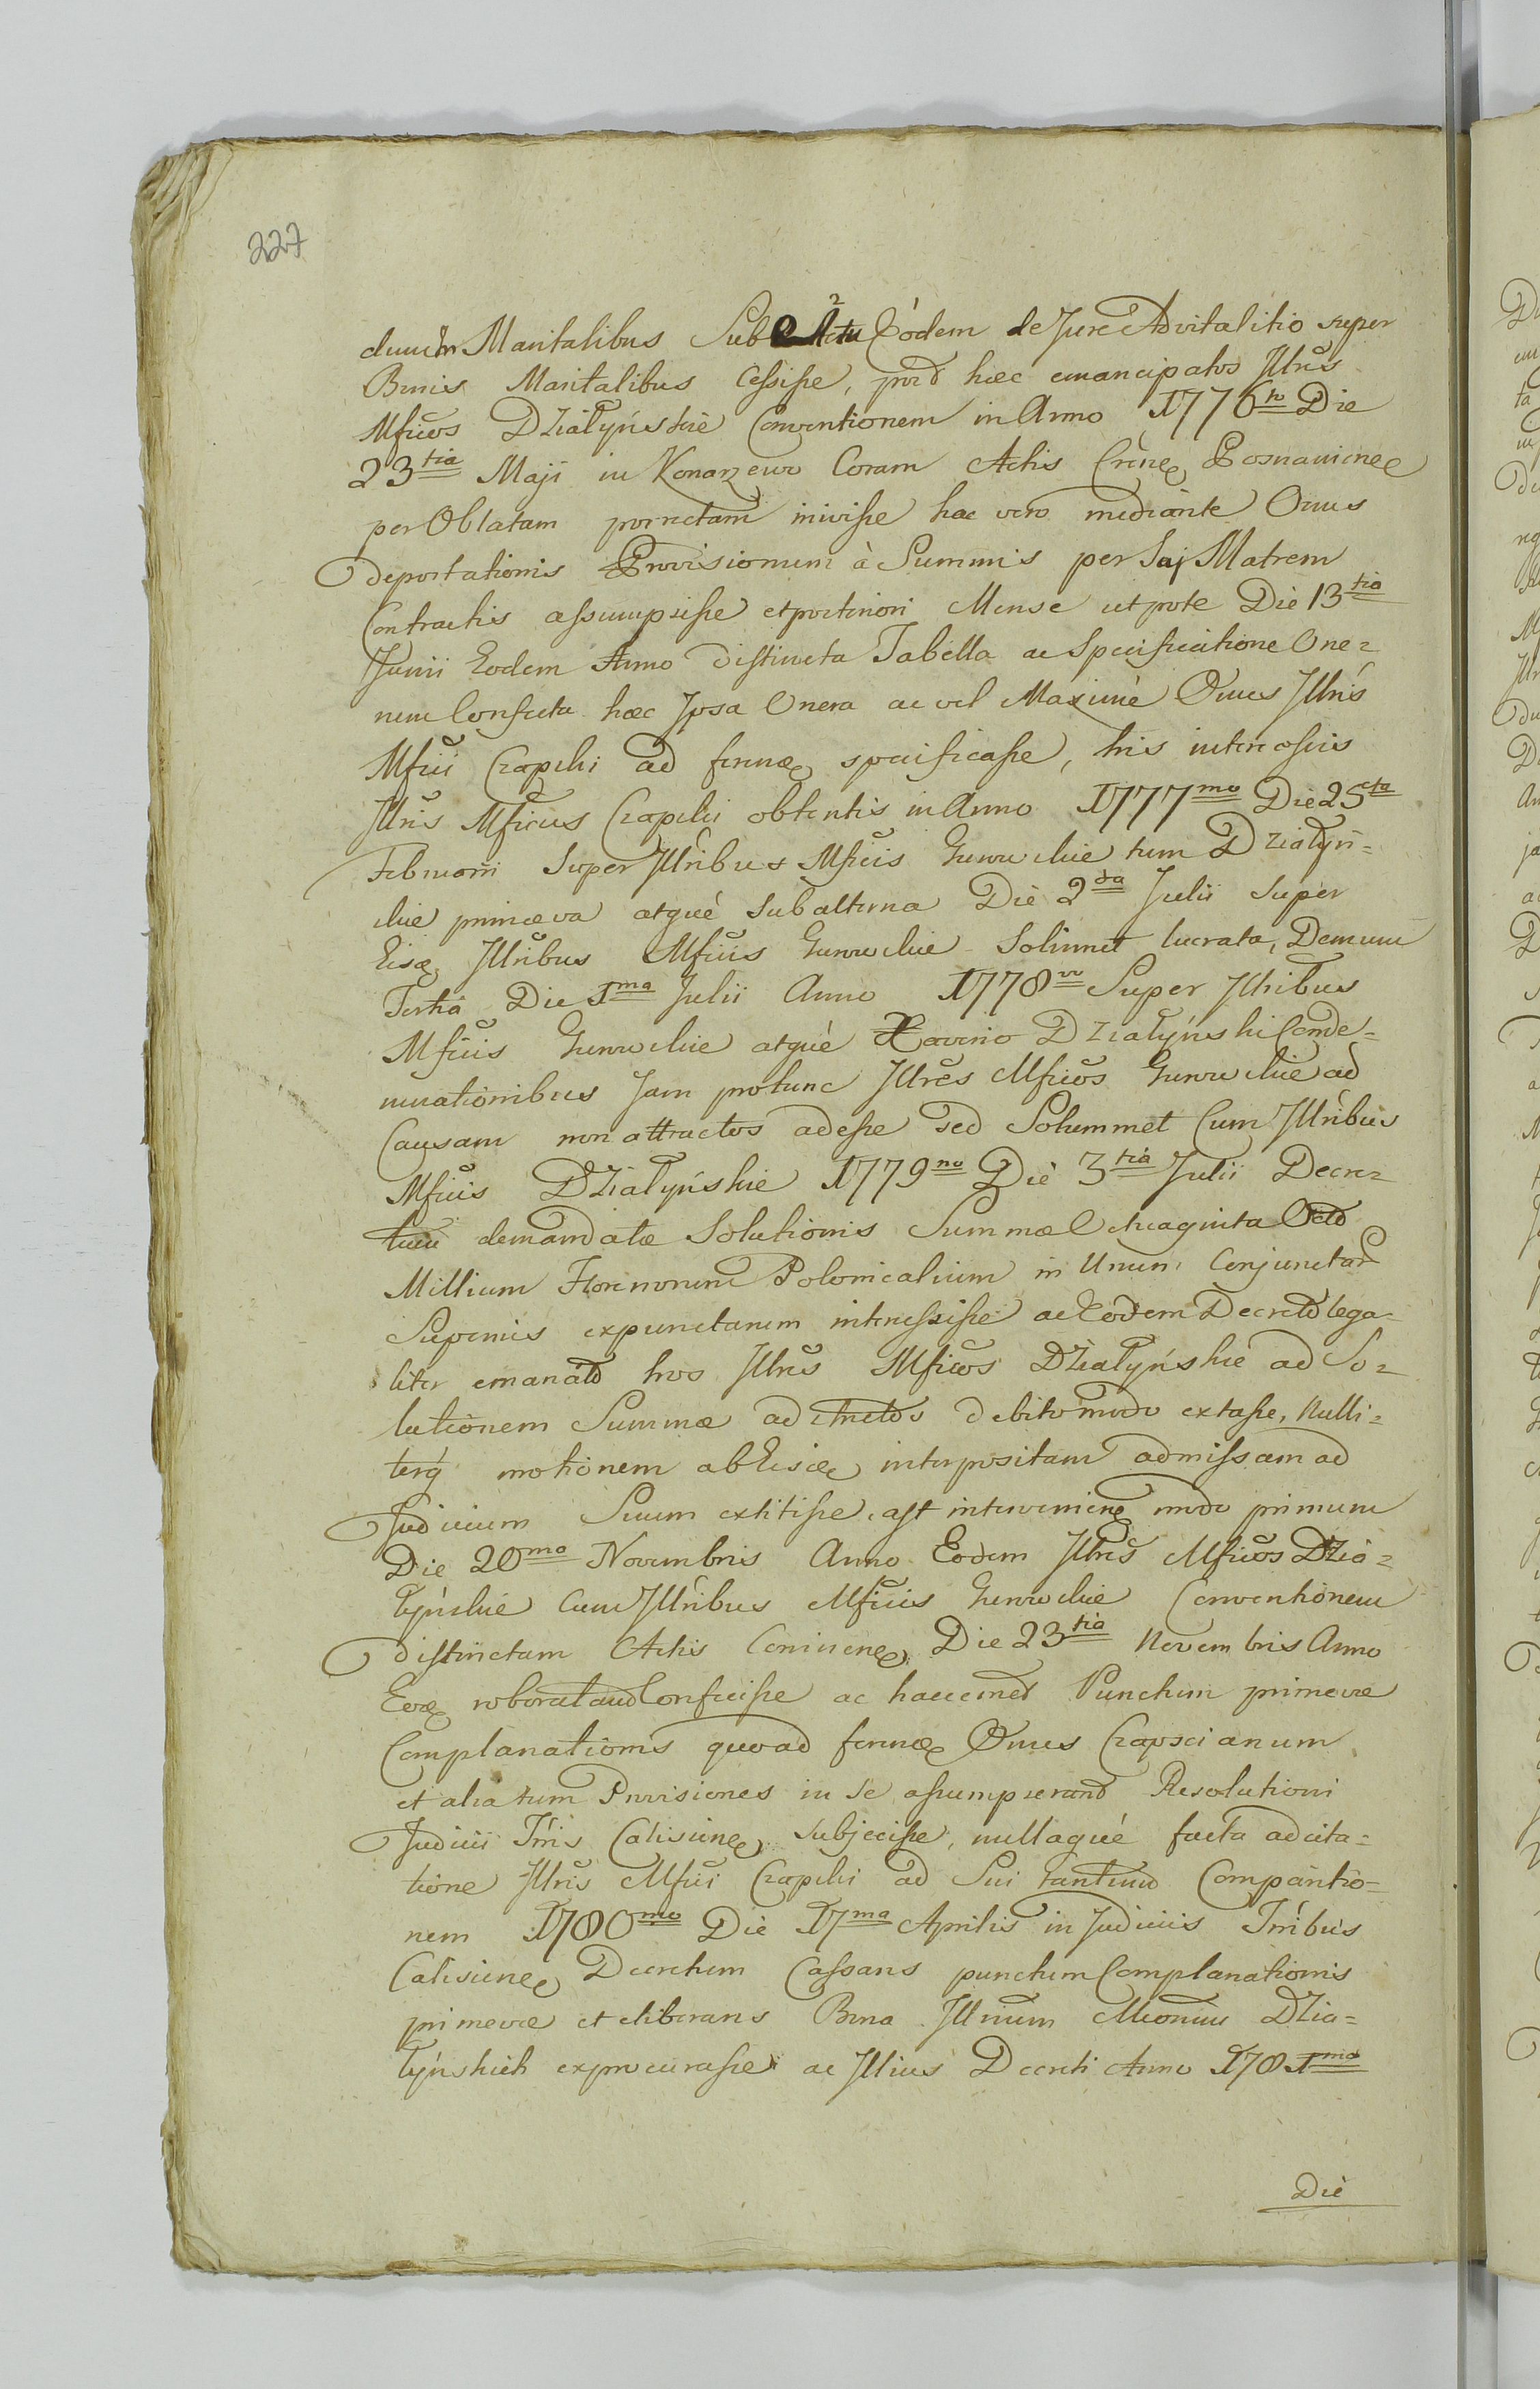 227
Maritalibus Sub Actu Eodem de Jure Advitalitio super
Bonis Maritalibus Cessisse, post hæc emancipatos Jllres
Mficos Działyńskie Conventionem in Anno 1776to Die
23tia Maji in Konarzewo Coram Actis Posnanien
per Oblatam porrectam inivisse hac vero mediante Onus
deportationis Provisionum à Summis per Matrem
Contractis assumpsisse et posteriori Mense utpote Die 13tia
Junii Eodem Anno distincta Tabella ac Specificatione One=
rum Confecta hæc Jpsa Onera ac vel Maximè Onus Jllris
Mfici Czapski ad specificasse, his
Jllris Mficus Czapski obtentis in Anno 1777mo Die 25ta
Februarii Super Jllribus Mficis tum Działyń=
skie primæva atquè subalterna Die 2da Julii super
Jllribus Mficis Solummet lucrata, Demum
Tertia Die 1ma Julii Anno 1778vo Super Jllribus
Mficis atquè Xaverio Działyński Conde=
mnationibus Jam protunc Jllres Mficos ad
Causam non attractos adesse sed Solummet Cum Jllribus
Mficis Działyńskie 1779no Die 3tia Julii Decre=
tum demandatæ Solutionis Summæ Octuaginta Octo
Millium Florenorum Polonicalium in Unum Conjunctar
Superius expunctarum intercessisse ac Eodem Decreto lega=
liter emanato hos Jllres Mficos Działyńskie ad So=
lutionem Summæ adstrictos debito modo extasse, Nulli=
terq motionem ab interpositam admissam ad
Judicium Suum extitisse, ast modo primum
Die 20mo Novembris Anno Eodem Jllres Mficos Dzia=
łyńskie Cum Jllribus Mficis Conventionem
distinctam Actis Die 23tia Novembris Anno
roboratam Confecisse ac Punctum primevæ
Complanationis quoad Onus Czapscianum
et aliarum Provisiones in se assumpserant Resolutioni
Judicii Tris Calisien subjecisse, nullaquè facta adcita=
tione Jllris Mfici Czapski ad Sui tantum Comparitio=
nem 1780mo Die 17ma Aprilis in Judiciis Tribus
Calisien Decretum Cassans punctum Complanationis
primevæ et eliberans Bona Jllrium Mcorum Dzia=
łyńskich exprocurasse ac Jllius Decreti Anno 1781mo
Die